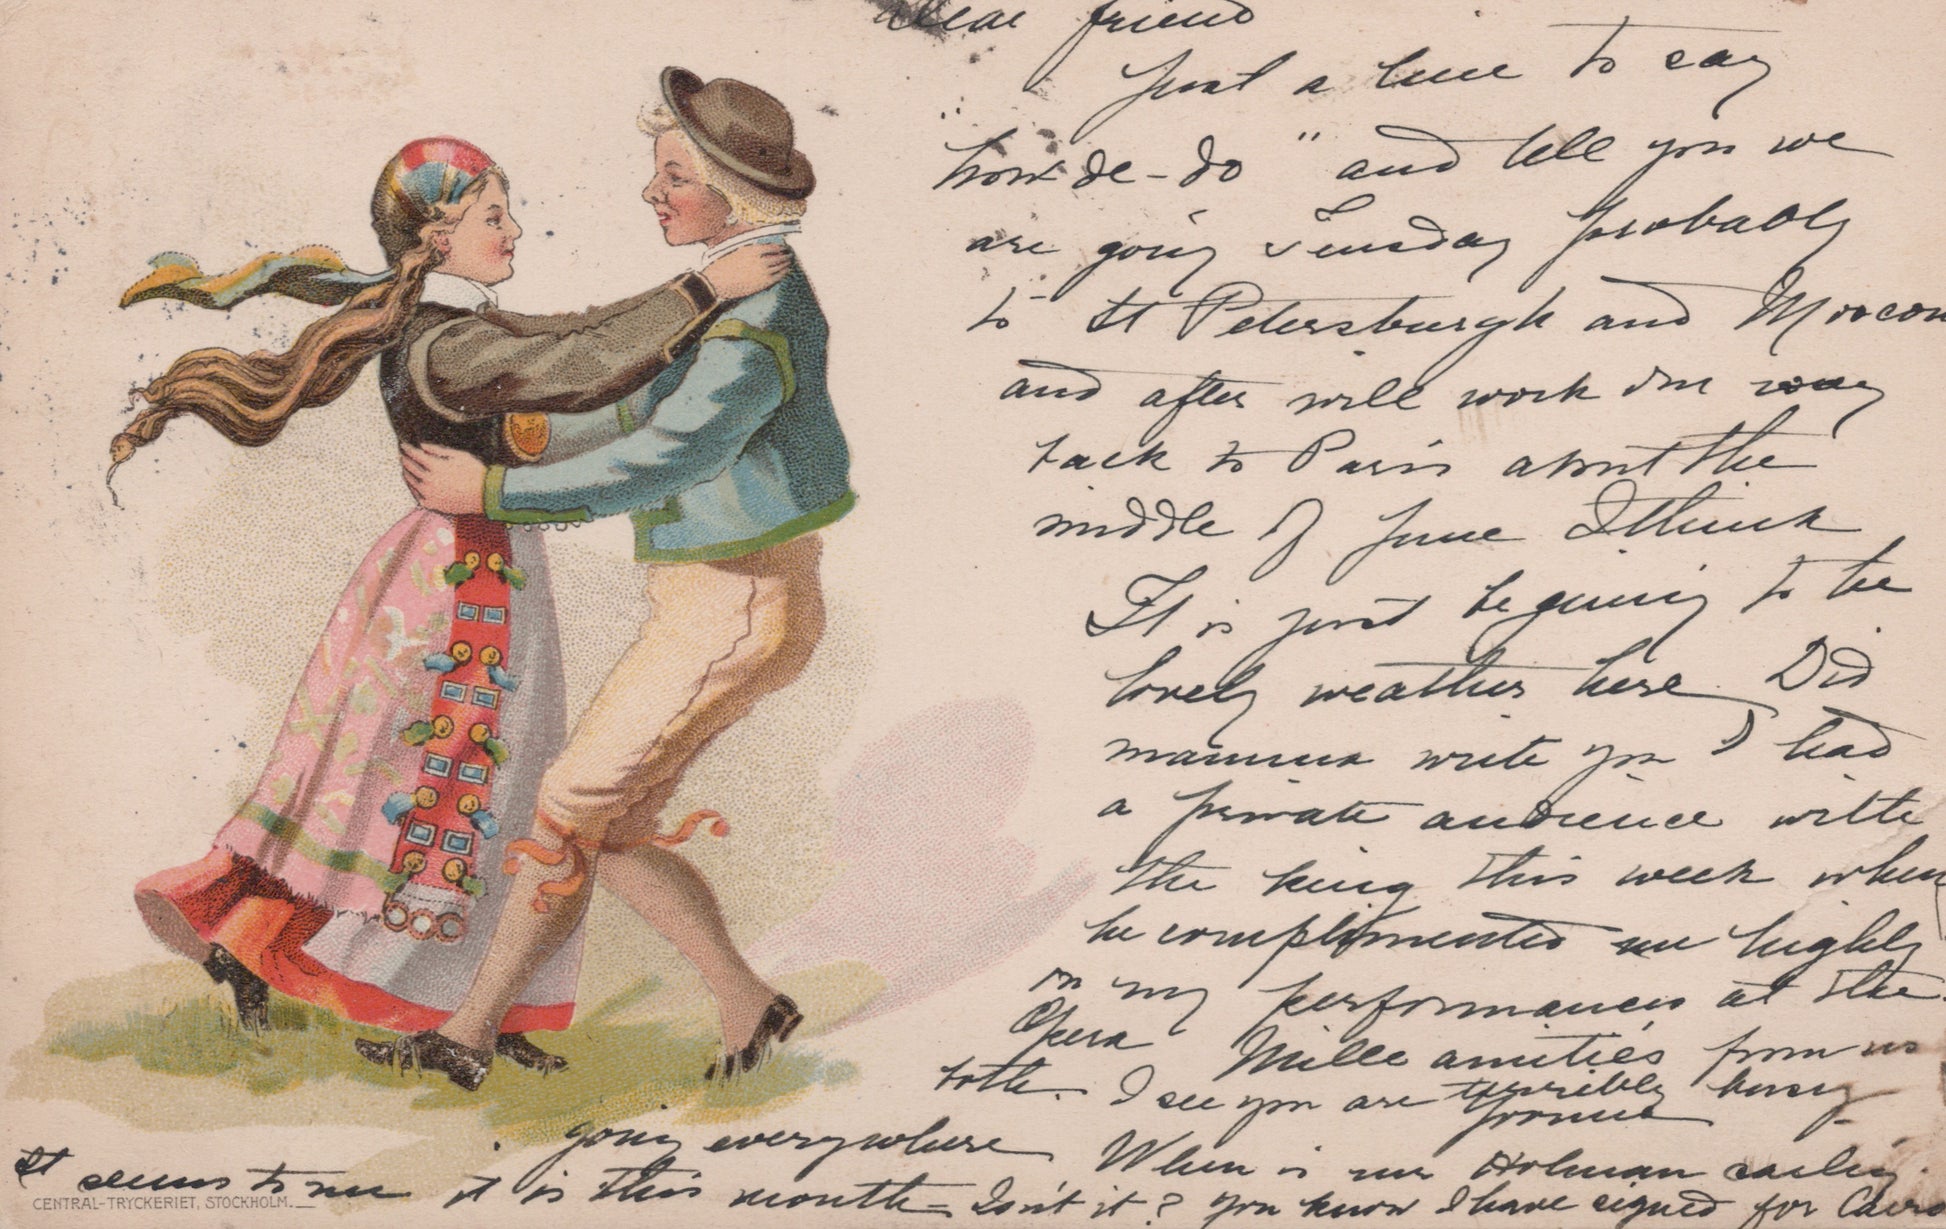 Dear friend
Just a line to say
"how de-do" and tell you we
are going Tuesday probably
to St Petersburgh and Moscow
and after will work our way
back to Paris about the
middle of June I think
It is just begining to be
lovely weather here. Did
mamma write you I had
a private audience with
the king this week when
he complimented me highly
on my performances at the
Opera Mille amitiés from us
both. I see you are terribly busy
going everywhere
Yvonne
When is mr Holman sailing.
It seems to me it is this month - Isn't it? You know I have signed for Cairo
CENTRAL-TRYCKERIET, STOCKHOLM.